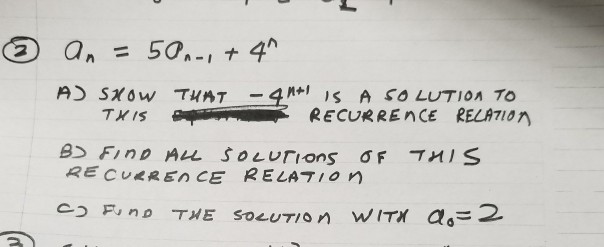 ② aₙ = 5aₙ₋₁ + 4ⁿ
A) SHOW THAT -4ⁿ⁺¹ IS A SOLUTION TO
THIS RECURRENCE RELATION
B) FIND ALL SOLUTIONS OF THIS
RECURRENCE RELATION
C) FIND THE SOLUTION WITH a₀=2